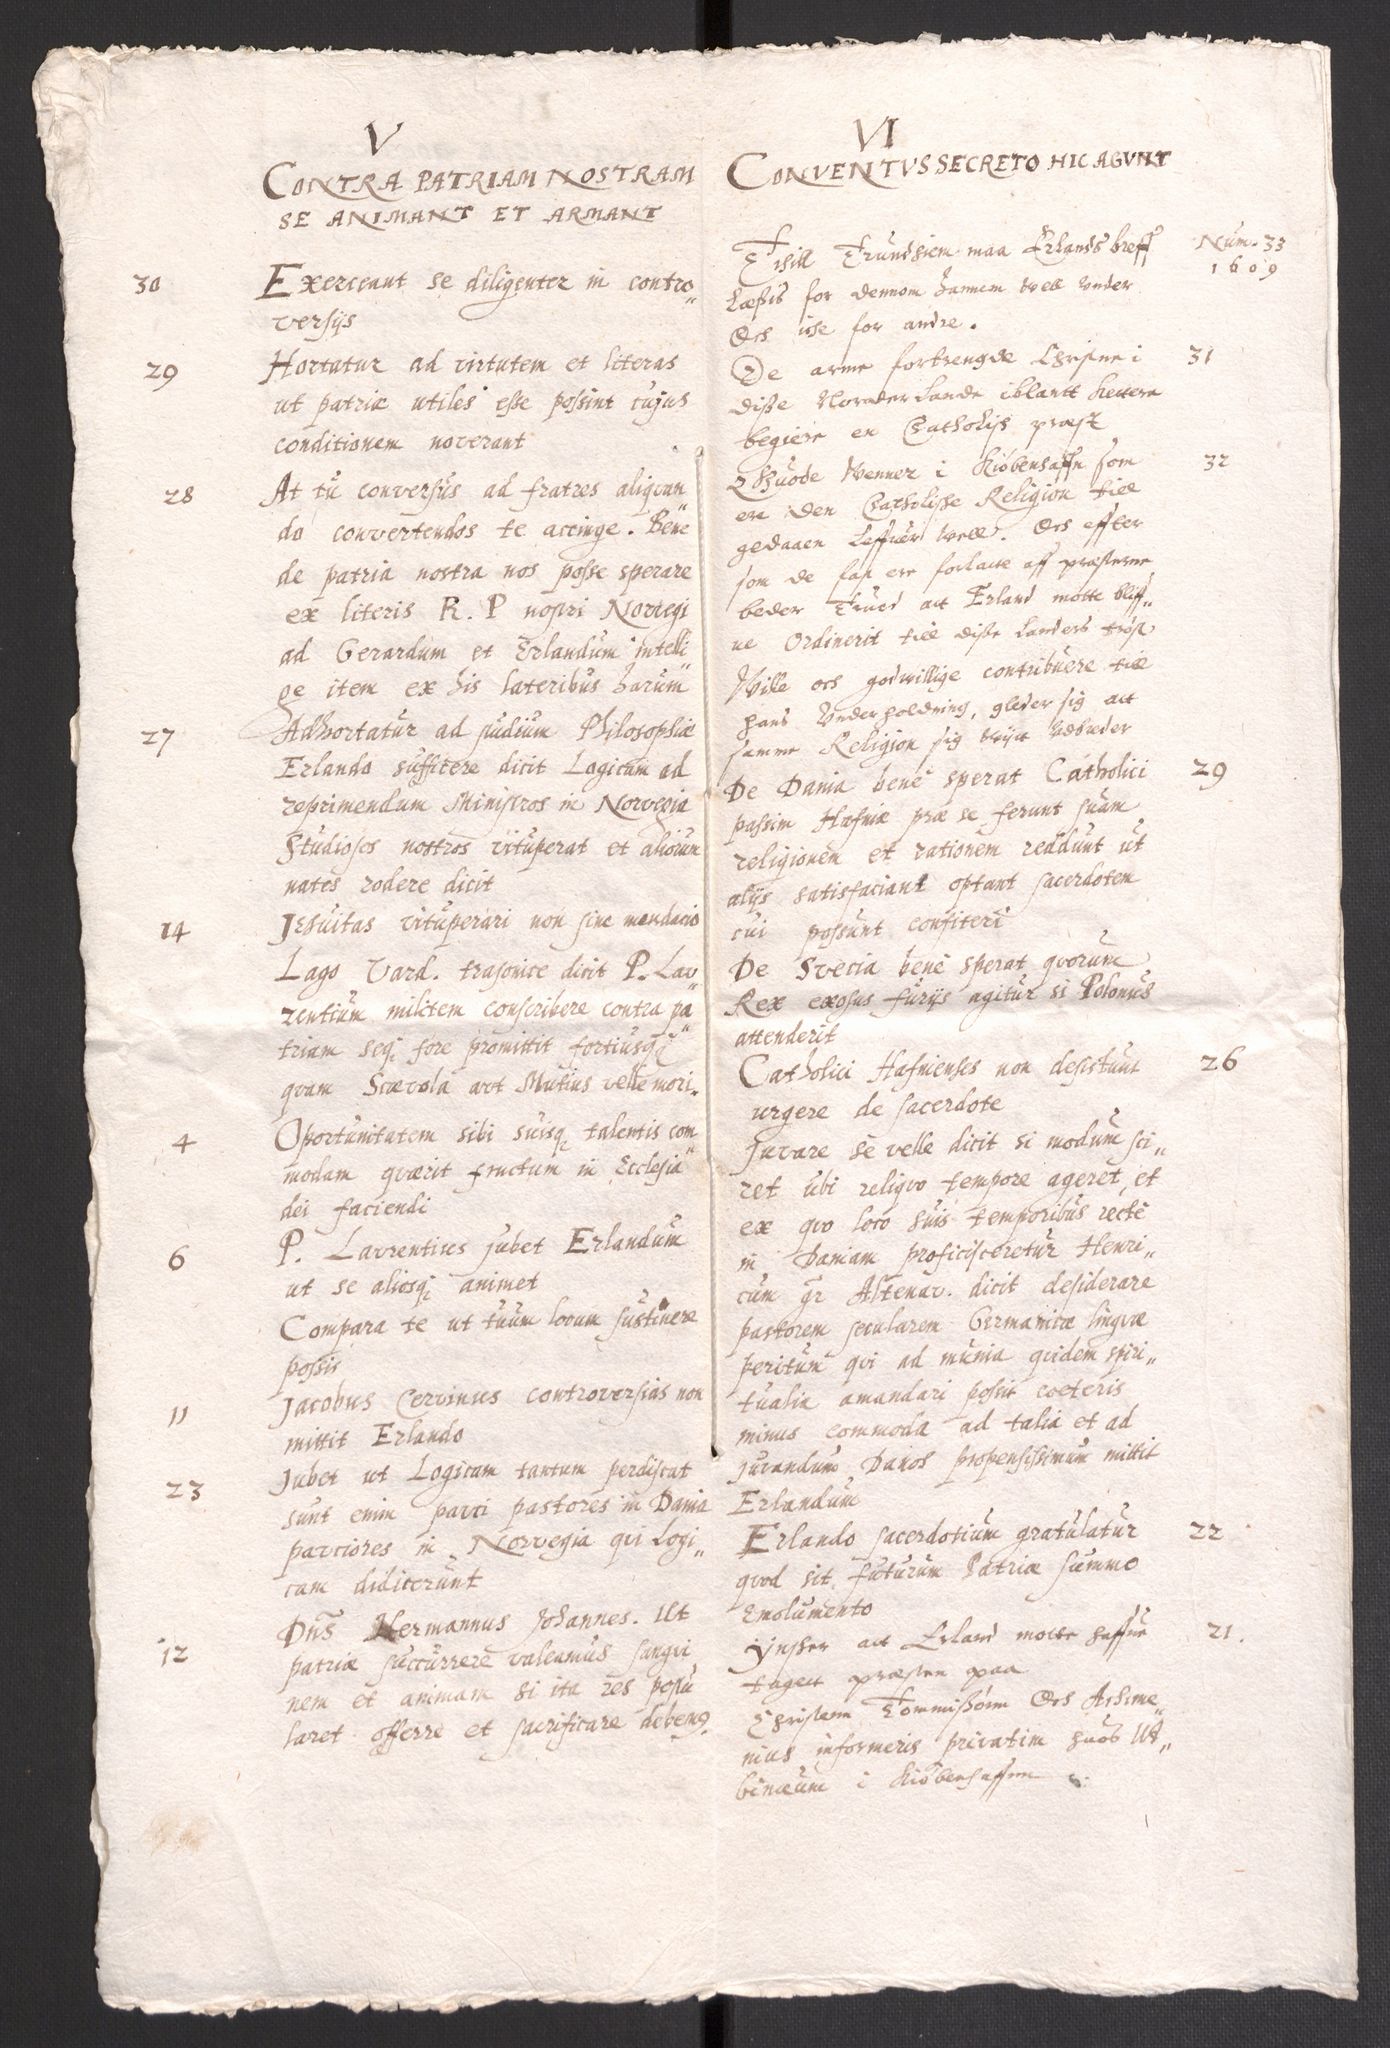 V
CONTRA PATRIAM NOSTRAM
SE ANIMANT ET ARMANT
30 Exerceant se diligenter in contro„
versijs
29 Hortatur ad virtutem et literas
ut patriæ utiles esse possint cujus
conditionem noverant
28 At tu conversus ad fratres aliqvan„
do convertendos te accinge. Bene
de patria nostra nos posse sperare
ex literis R. P nostri Norvegi
ad Gerardum et Erlandum intelli„
ge item ex his lateribus harum
27 Adhortatur ad studium Philosophiæ
Erlando sufficere dicit Logicam ad
reprimendum Ministros in Norvegia
Studiosos nostros vituperat et aliorum
nates rodere dicit
14 Jesuitas vituperari non sine mendacio
Lago Vard. trasonice dicit P. Lau„
rentium militem conscribere contra pa„
triam seqꝫ fore promittit fortiusqꝫ
qvam Scævola aut Mutius velle mori.
4 Oportunitatem sibi suisqꝫ talentis com„
modam qværit fructum in Ecclesia
dei faciendi
6 P. Laurentius jubet Erlandum
ut se aliosqꝫ animet
Compara te ut tuum locum sustinere
possis
11 Jacobus Cervinus controversias non
mittit Erlando
23 Jubet ut Logicam tantum perdiscat
sunt enim pauci pastores in Dania
pauciores in Norvegia qvi Logi„
cam didicerunt
12 Dns Hermannus Johannes. Ut
patriæ succurrere valeamus sangvi
nem et animam si ita res postu
laret offerre et sacrificare debemꝰ.
VI
CONVENTVS SECRETO HIC AGVNT
Num. 33
1609
Trundsiem maa Erlands breff
Læssis for dennom hannem vell under
Och icke for andre.
31 De arme fortrengde Christne i
disse Norder Lande iblantt kettere
begiere en Catholisk præst
32 Guode Venner i Kiöbenhaffn som
ere den Catholiske Religion till
gedaaen Leffuer well. Och effter
som de saa ere forlatte aff præsterne
beder Truid att Erland motte bliff„
ue Ordinerit till disse Landers tröst
Wille och godwillige contribuere till
hans Underholdning, gleder sig att
samme Religion sig vijtt Udbreder
29 De Dania bene sperat Catholici
passim Hafniæ præ se ferunt suam
religionem et rationem reddunt ut
alijs satisfaciant optant sacerdotem
cui possunt confiteri
De Svecia bene sperat qvorum
Rex exosus furijs agitur si Polonus
attenderit
26 Catholici Hafnienses non desistunt
urgere de sacerdote
Juvare se velle dicit si modum sci„
ret ubi reliqvo tempore ageret, et
ex qvo loco suis temporibus recte
in Daniam proficisceretur Henri„
cum gr Altenav. dicit desiderare
pastorem secularem Germanicæ lingvæ
peritum qvi ad munia qvidem spiri„
tualia amandari possit coeteris
minus commoda ad talia et ad
juvandum Danos propensissimum mittit
Erlandum
22 Erlando sacerdotium gratulatur
qvod sit futurum Patriæ summo
Emolumento
21. Ynsker att Erland motte haffue
taget præsten paa
Christern Och
nius informeris privatim huos
i Kiöbenhaffnn